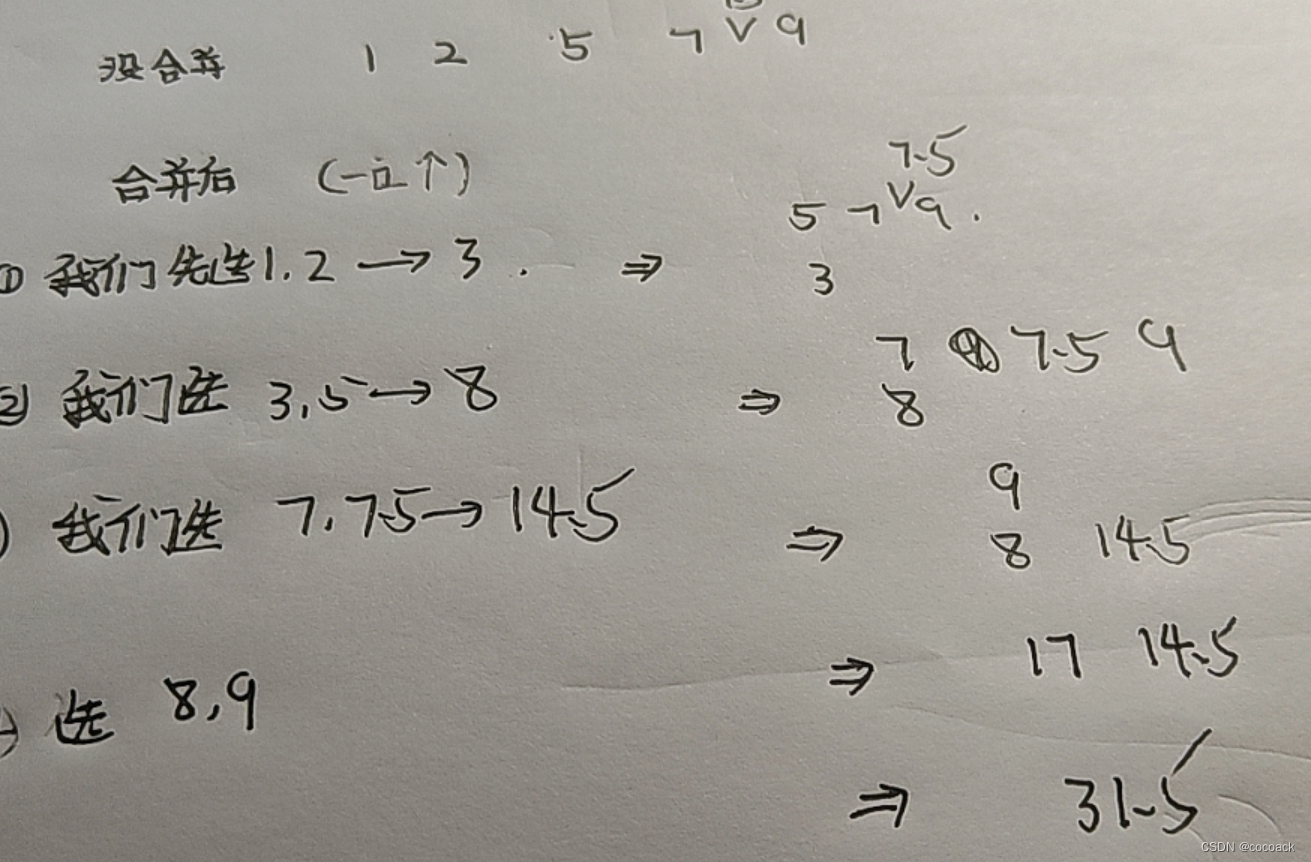 没合并 1 2 5 7 V 9
合并后 (一立个) 7.5
5 7 V 9 .
① 我们先选1.2 → 3 . ⇒ 3
7 7.5 9
② 我们选 3,5 → 8 ⇒ 8
9
) 我们选 7,7.5 → 14.5 ⇒ 8 14.5
⇒ 17 14.5
选 8,9
⇒ 31.5
CSDN @cocoack